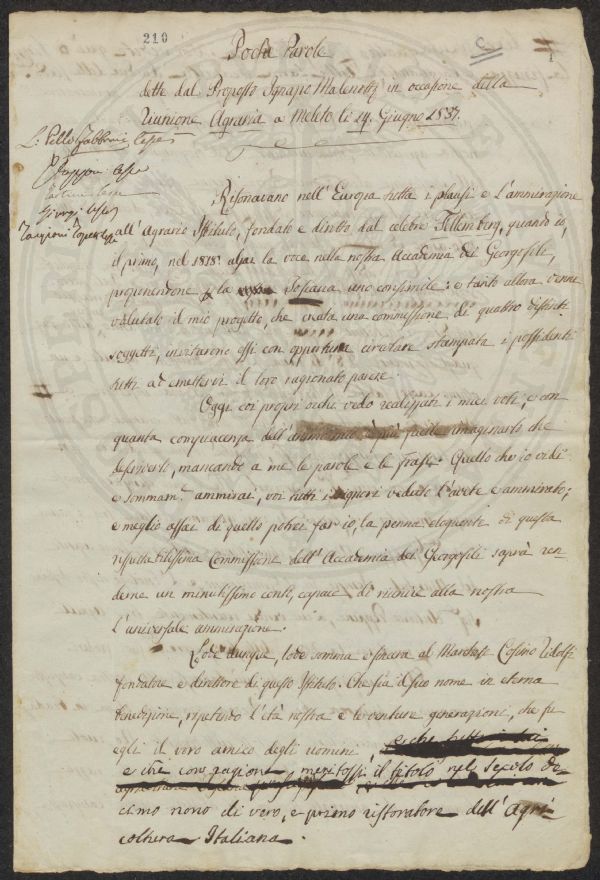 210
C
1
Poche Parole
dette dal Proposto Ignazio Malenotti in occasione della
Riunione Agraria a Meleto li 14. Giugno 1837.
L: Pelli Fabbroni lesse
lesse
lesse
lesse
lesse
Risonavano nell'Europa tutta i plausi e l'ammirazione
all'Agrario Istituto, fondato e diretto dal celebre Fellemberg, quando io,
il primo, nel 1818. alzai la voce nella nostra Accademia dei Georgofili,
proponendone la Toscana uno consimile: e tanto allora venne
valutato il mio progetto, che creata una commissione di quattro distinti
soggetti, invitarono essi con opportuna circolare stampata i possidenti
tutti ad emettervi il loro ragionato parere.
Oggi coi propri occhi vedo realizzati i miei voti, e con
quanta compiacenza dell' è più facile immaginarlo che
descriverlo, mancando a me le parole e le frasi. Quello che io vidi
e sommam.e ammirai, voi tutti i Signori veduto l'avete e ammirato;
e meglio assai di quello potrei far io, la penna eloquente di questa
rispettabilissima Commissione dell'Accademia dei Georgofili saprà ren-
derne un minutissimo conto, capace di riunire alla nostra
l'universale ammirazione.
Lode dunque, lode somma e sincera al Marchese Cosimo Ridolfi
fondatore e direttore di questo Istituto. Che sia il suo nome in eterna
benedizione, ripetendo l'età nostra e le venture generazioni, che fu
egli il vero amico degli uomini,
e che con ragione meritossi il titolo nel Secolo de-
cimo nono di vero, e primo ristoratore dell'Agri-
coltura Italiana.